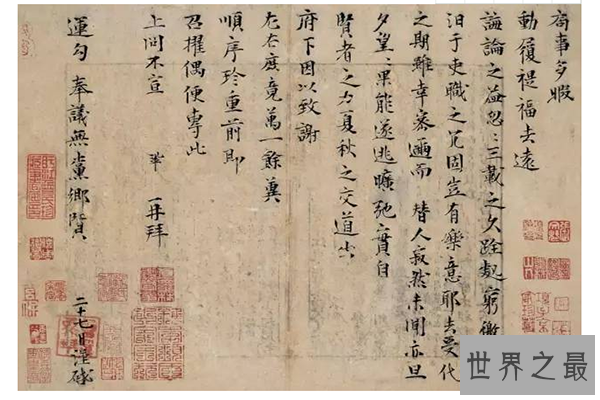 局事多暇
動履禔福去遠
誨論之益忽〻三載之久跧處窮徼
汩于吏職之冗固豈有樂意耶去受代
之期雖幸密邇而替人寂然未聞亦旦
夕望〻果能遂逃曠弛實自
賢者之力夏秋之交道出
府下因以致謝
左右庶竟萬一餘冀
順序珍重前即
召擢偶便專此
上問不宣 鞏 再拜
運勾奉議無黨鄉賢
二十七日謹啟
世界之最